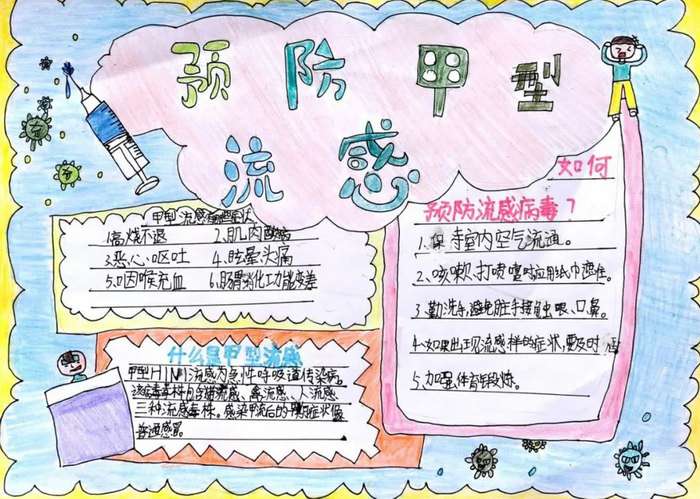 预防甲型
流感
甲型流感有哪些症状
1.高烧不退 2.肌肉酸痛
3.恶心、呕吐 4.眩晕、头痛
5.咽喉充血 6.肠胃消化功能变差
什么是甲型流感
甲型H1N1流感为急性呼吸道传染病。
该病毒毒株包含猪流感、禽流感、人流感
三种流感毒株。感染甲流后的早期症状像
普通感冒
如何
预防流感病毒?
1.保持室内空气流通。
2、咳嗽、打喷嚏时应用纸巾遮住。
3.勤洗手,避免脏手接触眼、口、鼻。
4.如果出现流感样的症状,要及时
5、加强体育锻炼。